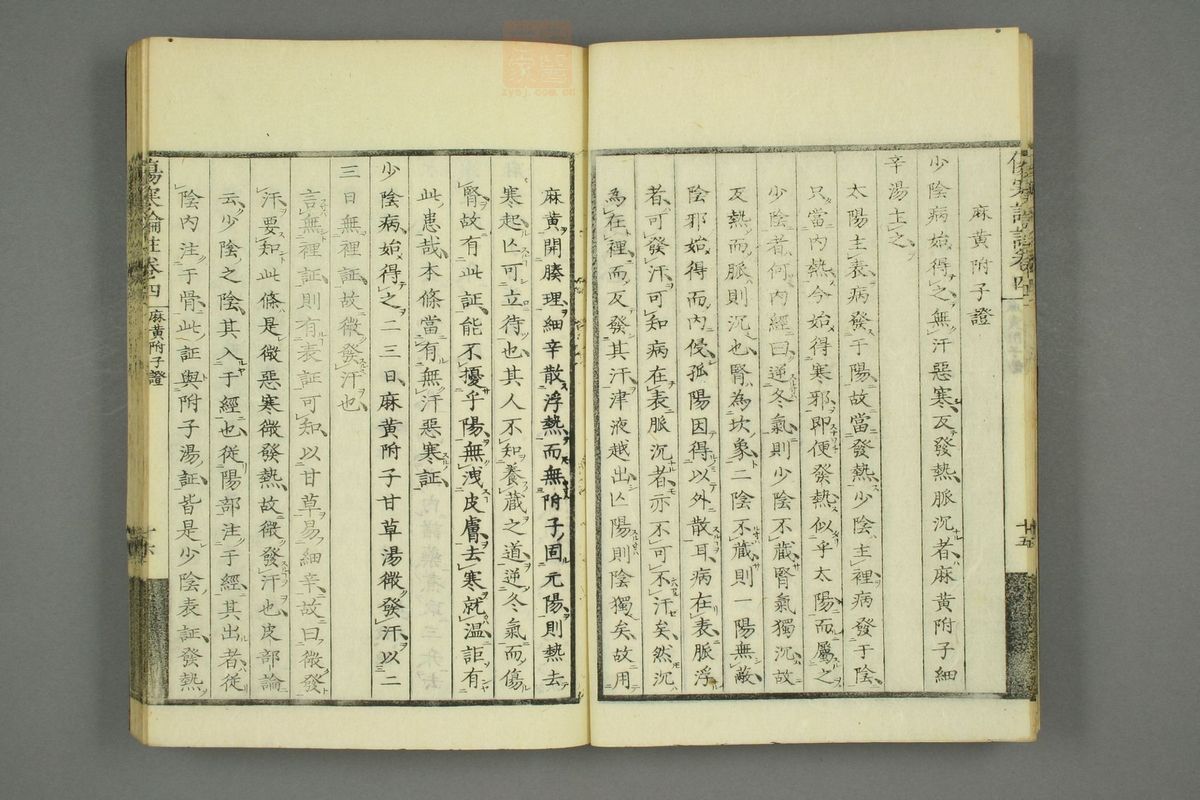 麻黄附子證
少陰病始得之無汗惡寒反發熱脈沉者麻黄附子細
辛湯主之
太陽主表病發于陽故當發熱少陰主裡病發于陰
只當内熱今始得寒邪即便發熱似乎太陽而屬之
少陰者何内經曰逆冬氣則少陰不藏腎氣獨沉故
反熱而脈則沉也腎為坎象二陰不藏則一陽無蔽
陰邪始得而内侵孤陽因得以外散耳病在表脈浮
者可發汗可知病在表脈沉者亦不可不汗矣然沉
為在裡而反發其汗津液越出亾陽則陰獨矣故用
麻黄開腠理細辛散浮熱而無附子固元陽則熱去
寒起亾可立待也其人不知養藏之道逆冬氣而傷
腎故有此証能不擾乎陽無洩皮膚去寒就温詎有
此患哉本條當有無汗惡寒証
少陰病始得之二三日麻黄附子甘草湯微發汗以二
三日無裡証故微發汗也
言無裡証則有表証可知以甘草易細辛故曰微發
汗要知此條是微惡寒微發熱故微發汗也皮部論
云少陰之陰其入于經也従陽部注于經其出者従
陰内注于骨此証與附子湯証皆是少陰表証發熱
傷寒論註卷四
麻黄附子證
十五
十六